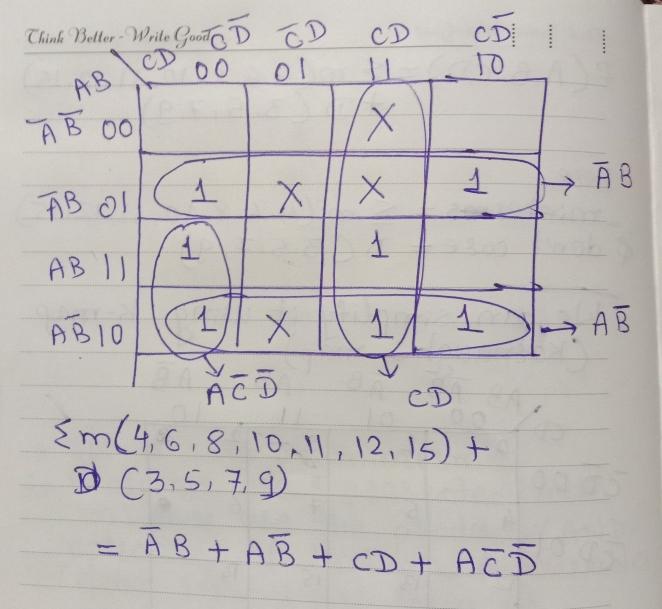 Think Better - Write Good
C̅D̅ C̅D CD CD̅
CD 00 01 11 10
AB
A̅B̅ 00 X
A̅B 01 1 X X 1 → A̅B
AB 11 1 1
AB̅ 10 1 X 1 1 → AB̅
AC̅D̅ CD
Σm(4, 6, 8, 10, 11, 12, 15) +
D (3, 5, 7, 9)
= A̅B + AB̅ + CD + AC̅D̅